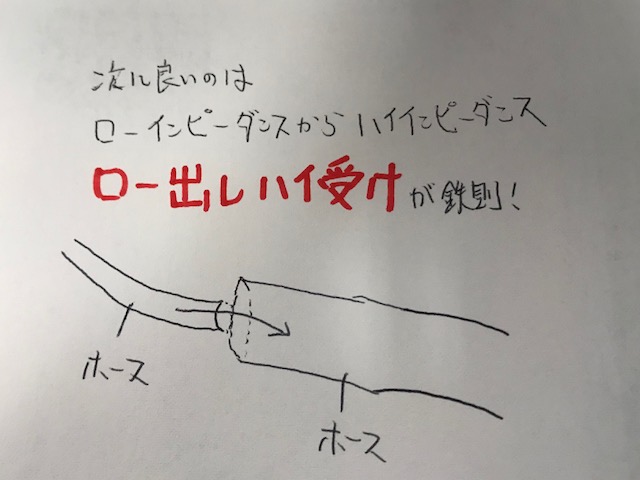 次に良いのは
ローインピーダンスからハイインピーダンス
ロー出しハイ受けが鉄則!
ホース
ホース